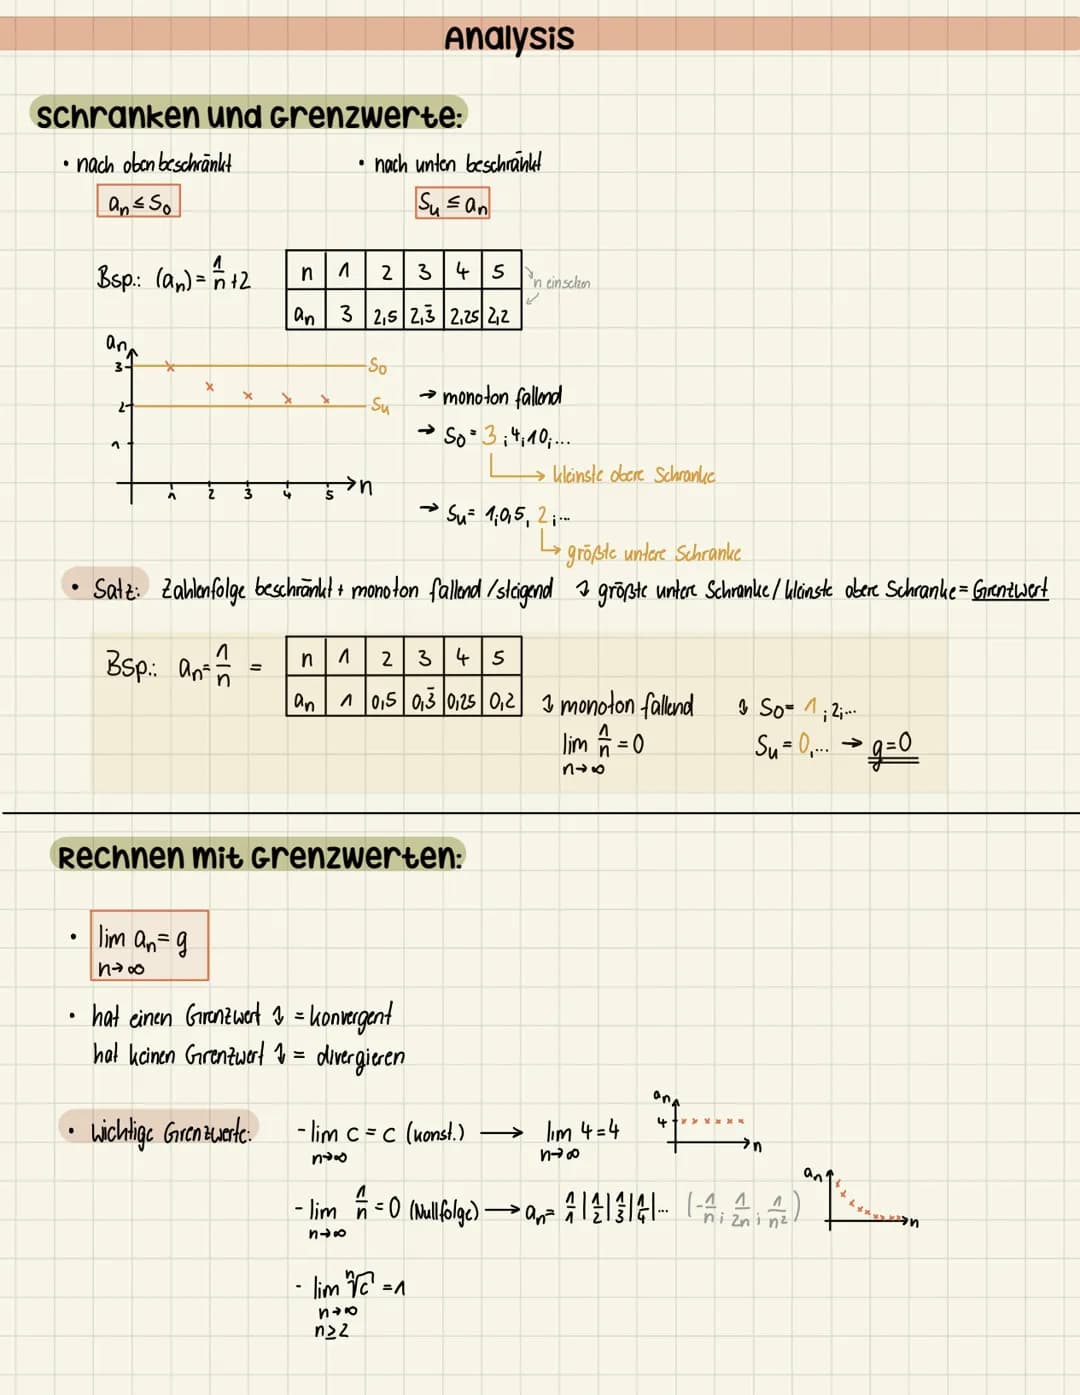 Analysis
Schranken und Grenzwerte:
• nach oben beschränkt • nach unten beschränkt
aₙ ≤ Sₒ Sᵤ ≤ aₙ
Bsp.: (aₙ) = 1/n + 2
n 1 2 3 4 5
aₙ 3 2,5 2,3̄ 2,25 2,2
aₙ
3 Sₒ
2 Sᵤ
1
1 2 3 4 5 n
→ monoton fallend
→ Sₒ = 3 ; 4 ; 10 ; ...
→ kleinste obere Schranke
→ Sᵤ = 1 ; 0,5 , 2 ; ...
→ größte untere Schranke
• Satz: Zahlenfolge beschränkt + monoton fallend / steigend größte untere Schranke / kleinste obere Schranke = Grenzwert
BSp.: aₙ = 1/n =
n 1 2 3 4 5
aₙ 1 0,5 0,3̄ 0,25 0,2
monoton fallend Sₒ = 1 ; 2 ; ...
lim 1/n = 0 Sᵤ = 0, ... → g = 0
n→∞
Rechnen mit Grenzwerten:
• lim aₙ = g
n→∞
• hat einen Grenzwert = konvergent
hat keinen Grenzwert = divergieren
• wichtige Grenzwerte: - lim c = c (konst.) → lim 4 = 4
n→∞ n→∞
aₙ
4
n
- lim 1/n = 0 (Nullfolge) → aₙ = 1/1 | 1/2 | 1/3 | 1/4 | ... (-1/n ; 1/2n ; 1/n²)
n→∞
aₙ
n
- lim ⁿ√c = 1
n→∞
n ≥ 2